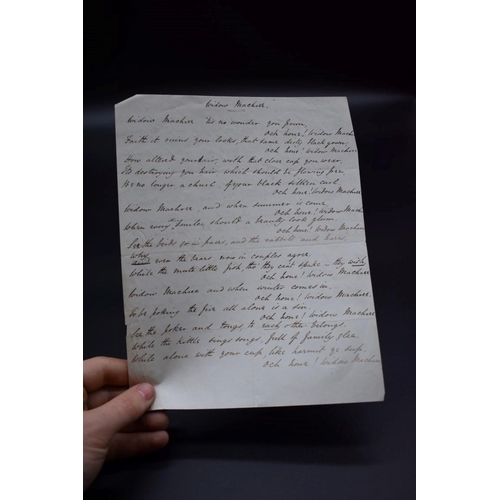 Widow Machree.
Widow Machree 'tis no wonder you frown,
Och hone! Widow Machree
Faith it ruins your looks, that same dirty black gown,
Och hone! Widow Machree
How altered your air, with that close cap you wear,
'Tis destroying your hair which should be flowing free
Be no longer a churl of your black silken curl
Och hone! Widow Machree
Widow Machree and when summer is come
Och hone! Widow Machree
When everything smiles, should a beauty look glum
Och hone! Widow Machree
See the birds go in pairs, and the rabbits and hares
Why even the bears now in couples agree
While the mute little fish tho' they cant spake - they wish
Och hone! Widow Machree
Widow Machree and when winter comes in
Och hone! Widow Machree,
To be poking the fire all alone is a sin
Och hone! Widow Machree
See the poker and tongs to each other belongs
While the kettle sings songs, full of family glee
While alone with your cup like hermit ye sup
Och hone! Widow Machree